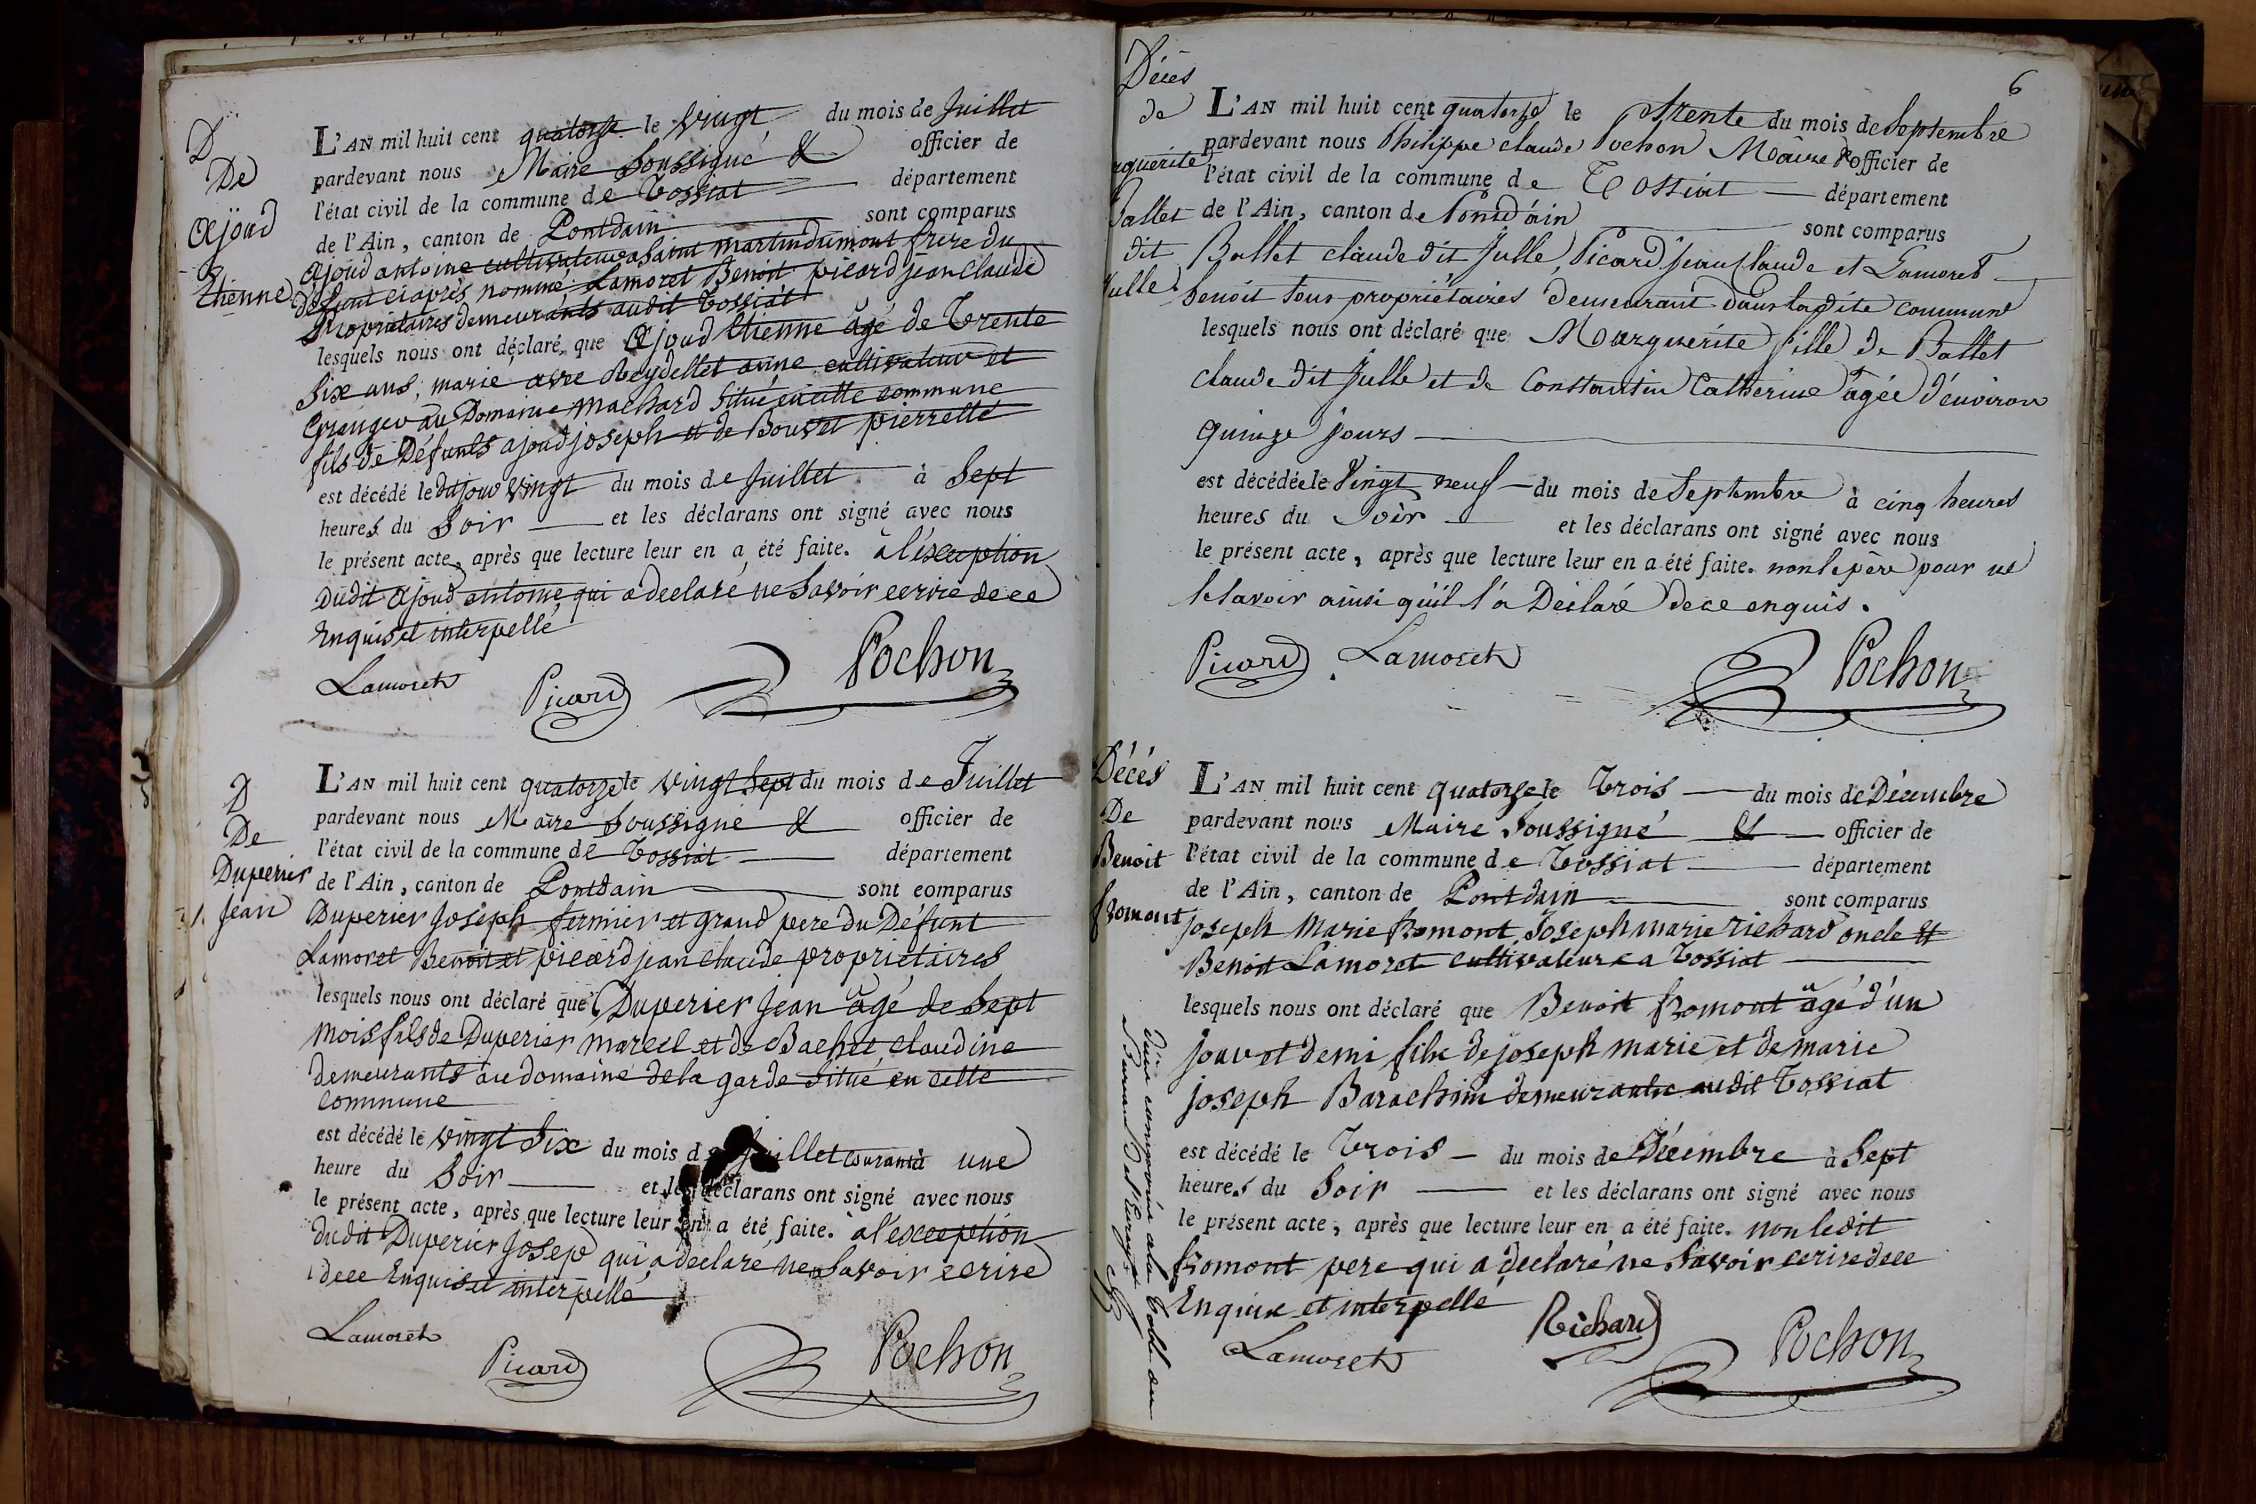 D
De
Ajoud
Etienne
L'AN mil huit cent quatorze le vingt du mois de Juillet
pardevant nous Maire Soussigné & officier de
l'état civil de la commune de Tossiat département
de l'Ain, canton de Pontdain sont comparus
Ajoud antoine cultivateur a Saint martin dumont frere du
défunt ciaprès nommé Lamoret Benoit picard jean Claude
Propriétaires demeurants audit Tossiat
lesquels nous ont déclaré que Ajoud Etienne âgé de Trente
Six ans, marie avec Reydellet anne cultivateur et
Granger au Domaine Machard Situé en cette commune
fils de Défunts ajoud joseph et de Bouvet pierrette
est décédé le dujour vingt du mois de Juillet à Sept
heures du Soir et les déclarans ont signé avec nous
le présent acte, après que lecture leur en a été faite. à l'exception
dudit Ajoud antoine qui a declaré ne Savoir ecrire de ce
Enquis et interpellé
Lamoret Picard Pochon
D
De
Duperier
Jean
L'AN mil huit cent quatorze le vingt Sept du mois de Juillet
pardevant nous Maire Soussigné & officier de
l'état civil de la commune de Tossiat département
de l'Ain, canton de Pontdain sont comparus
Duperier Joseph fermier et grand pere du Défunt
Lamoret Benoit et picard jean claude propriétaires
lesquels nous ont déclaré que Duperier Jean âgé de Sept
mois fils de Duperier marcel et de Bachet claudine
demeurants au domaine de la garde Situé en cette
commune
est décédé le vingt Six du mois de Juillet courant à une
heure du Soir et les déclarans ont signé avec nous
le présent acte, après que lecture leur en a été faite. à l'exception
dudit Duperier Josep qui a declaré ne Savoir ecrire
dece Enquis et interpellé
Lamoret Picard Pochon
6
Décès
de
rguerite
Ballet
dit
Julle
L'AN mil huit cent quatorze le Trente du mois de Septembre
pardevant nous Philippe claude Pochon Maire & officier de
l'état civil de la commune de Tossiat département
de l'Ain, canton de Pontdain sont comparus
Ballet claude dit Julle, Picard Jean Claude et Lamoret
benoit tous propriétaires demeurant dans ladite commune
lesquels nous ont déclaré que Marguerite fille de Ballet
claude dit Julle et de Constantin Catherine agée d'environ
quinze jours
est décédée le Vingt neuf du mois de Septembre à cinq heures
heures du Soir et les déclarans ont signé avec nous
le présent acte, après que lecture leur en a été faite. non le père pour ne
le savoir ainsi qu'il l'a Déclaré de ce enquis.
Picard Lamoret Pochon
Décés
De
Benoit
fromont
L'AN mil huit cent quatorze le Trois du mois de Décembre
pardevant nous Maire Soussigné & officier de
l'état civil de la commune de Tossiat département
de l'Ain, canton de Pontdain sont comparus
Joseph Marie fromont, Joseph marie richard oncle et
Benoit Lamoret cultivateurs a Tossiat
lesquels nous ont déclaré que Benoit fromont âgé d'un
jour et demi fils de joseph marie et de marie
joseph Barachin demeurants audit Tossiat
est décédé le Trois du mois de Décembre à Sept
heures du Soir et les déclarans ont signé avec nous
le présent acte, après que lecture leur en a été faite. non ledit
fromont pere qui a declaré ne Savoir ecrire dece
Enquis et interpellé
Richard
Lamoret Pochon